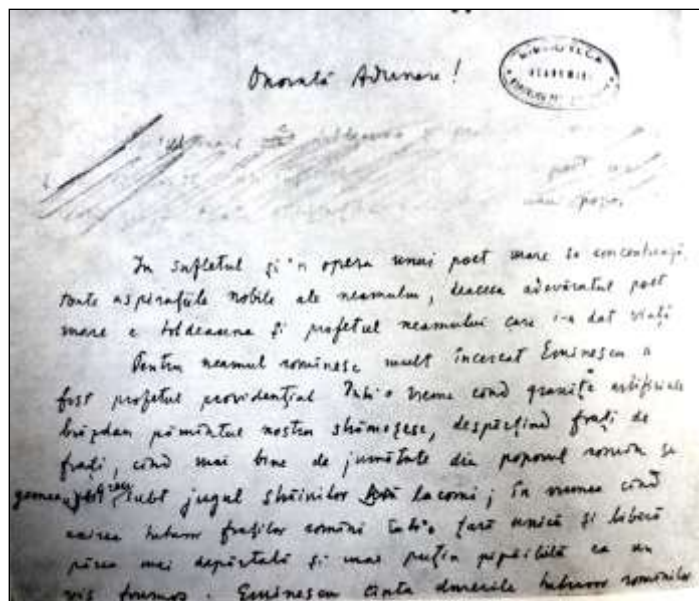 Onorată Adunare!
BIBLIOTECA
ACADEMIEI
totdeauna și
poet mare
unui popor,
În sufletul și'n opera unui poet mare se concentrează
toate aspirațiile nobile ale neamului, deaceea adevăratul poet
mare e totdeauna și profetul neamului care i-a dat viață
Pentru neamul românesc mult încercat Eminescu a
fost profetul providențial. Într'o vreme când granițe artificiale
brăzdau pământul nostru strămoșesc, despărțind frați de
frați, când mai bine de jumătate din poporul român se
gemea greu subt jugul străinilor lacomi; în vremea când
unirea tuturor fraților români într'o țară unică și liberă
părea mai depărtată și mai puțin pipăibilă ca un
vis frumos. Eminescu cânta durerile tuturor românilor